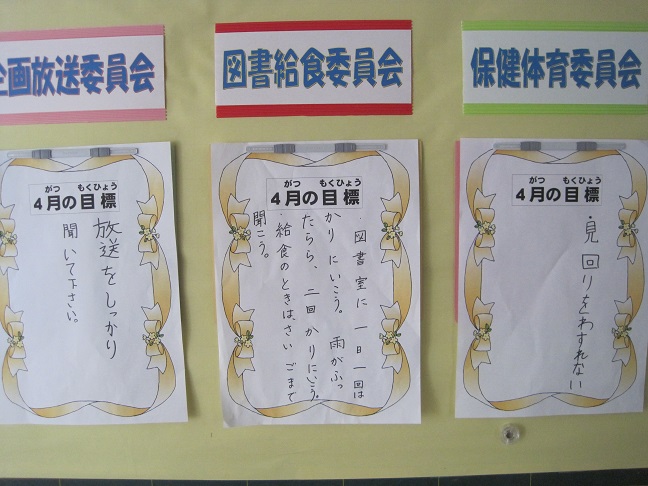 企画放送委員会
がつ もくひょう
4月の目標
放送をしっかり
聞いて下さい。
図書給食委員会
がつ もくひょう
4月の目標
・図書室に一日一回は
かりにいこう。雨がふっ
たらら、二回かりにいこう。
・給食のときは、さいごまで
聞こう。
保健体育委員会
がつ もくひょう
4月の目標
・見回りをわすれない